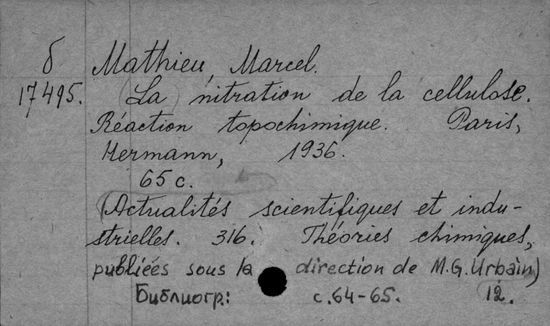 б
17495.
Mathieu, Marcel.
(La) nitration de la cellulose.
Réaction topochimique. Paris,
Hermann, 1936.
65 с.
(Actualités scientifiques et indu-
strielles. 316. Théories chimiques,
publiées sous la direction de M.G.Urbain,)
12.
Библиогр.: с.64-65.